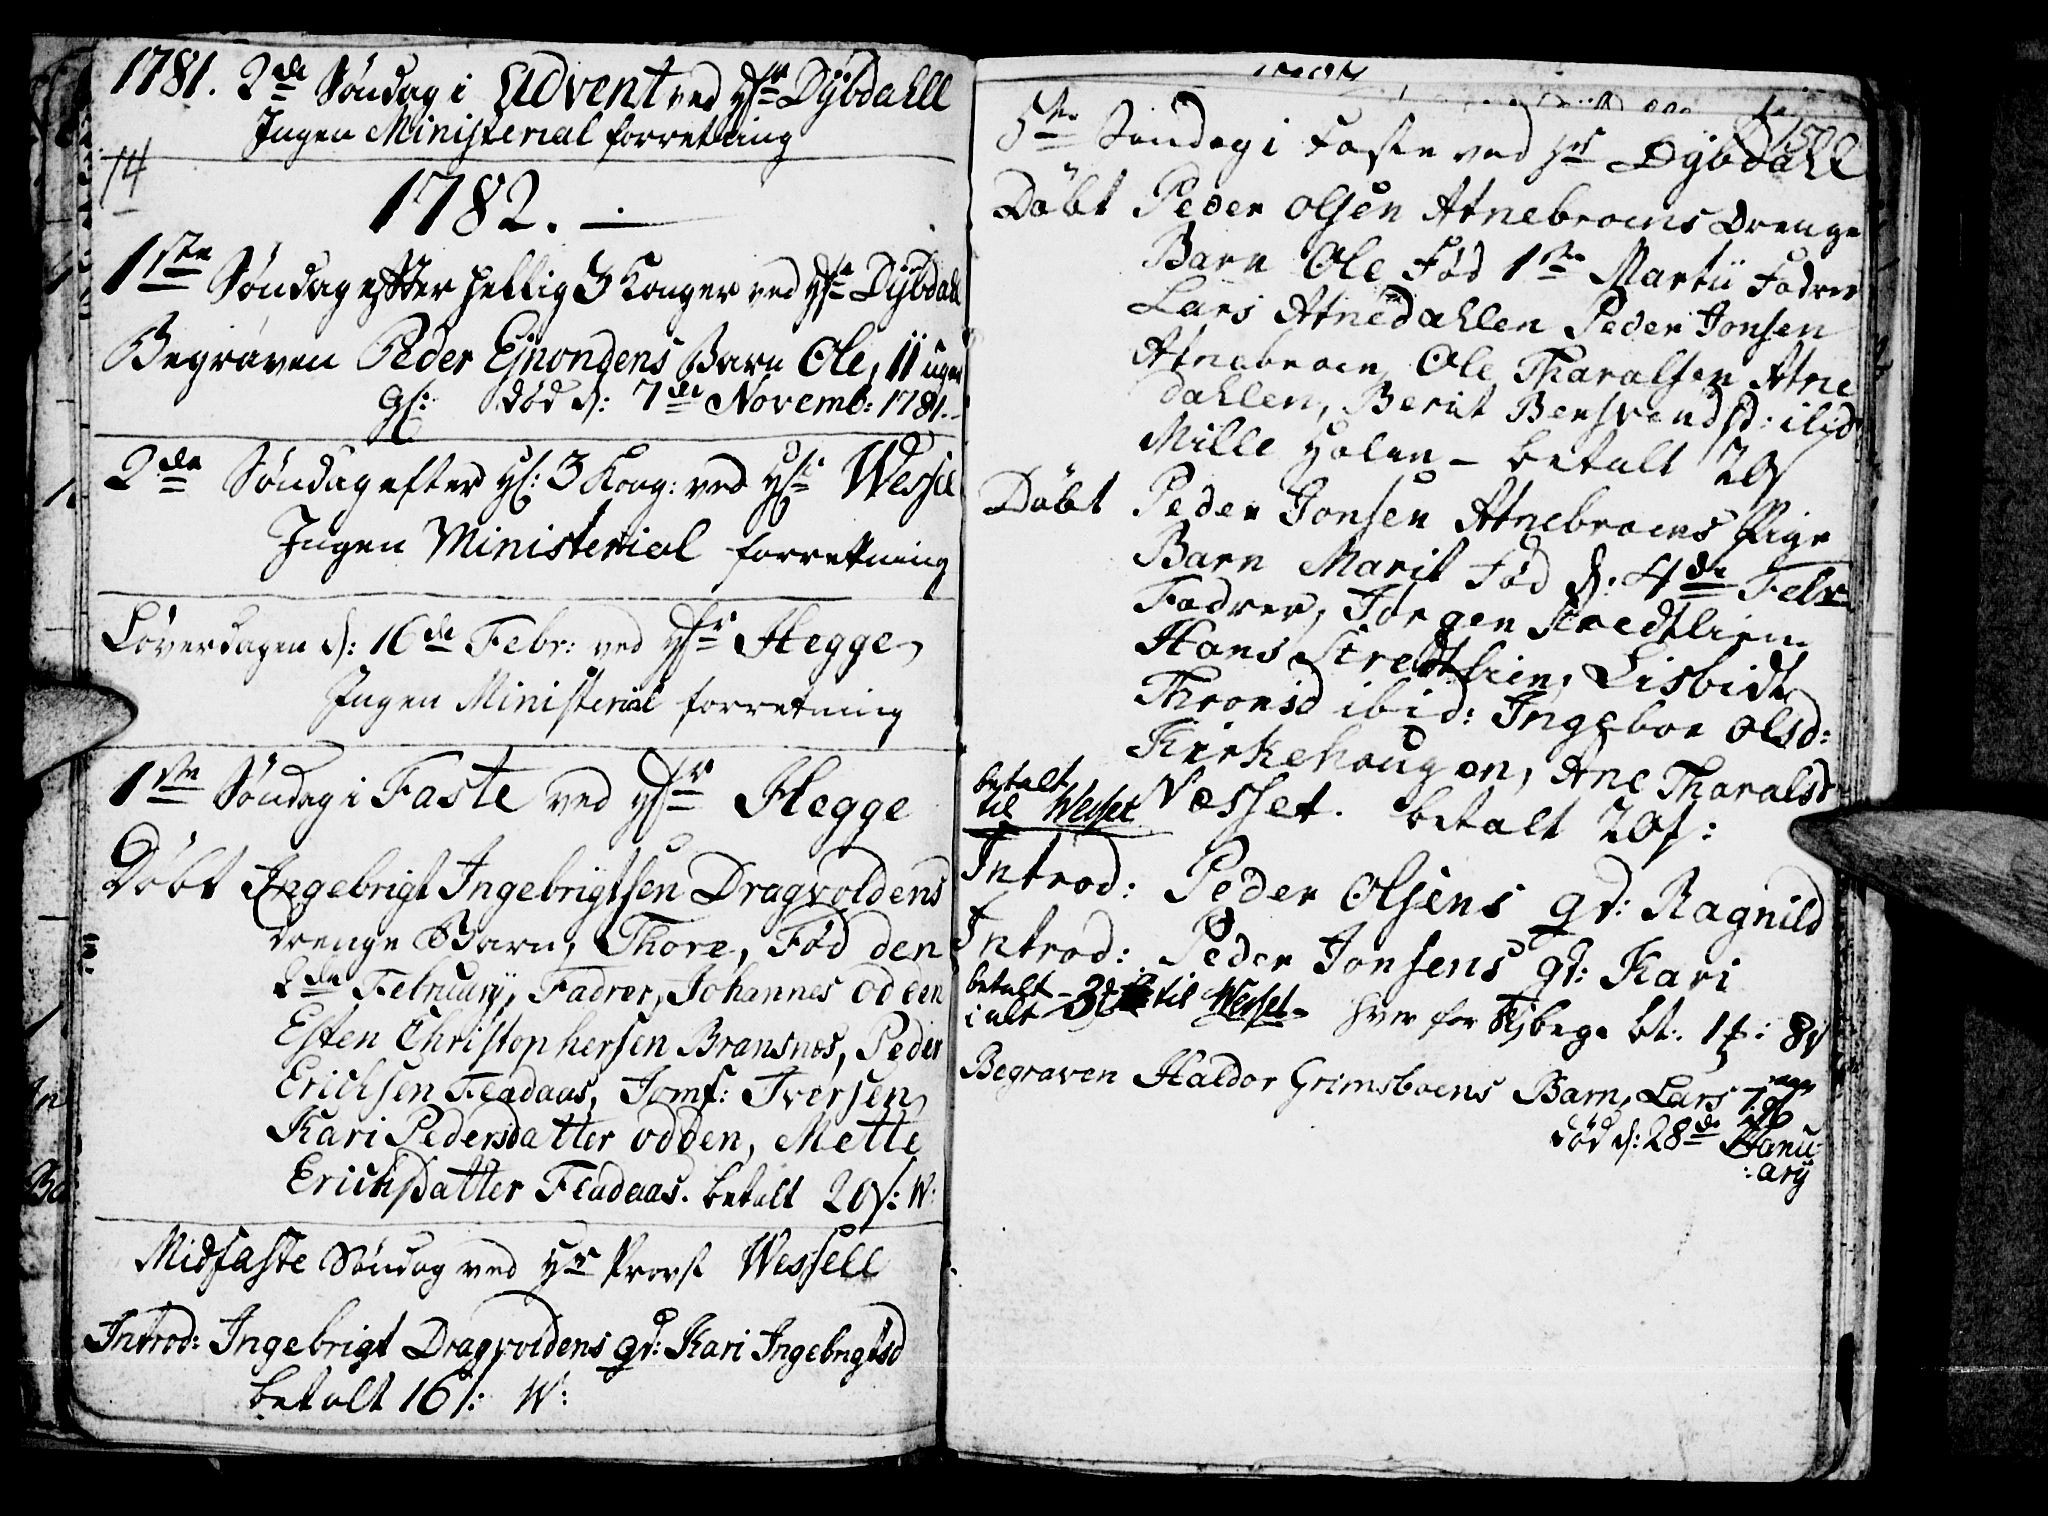 1781. 2de Søndag i Advent ved Hr Dÿbdahll
Ingen Ministerial forretning
14
1782. —
1ste Søndag efter hellig 3 Konger ved Hr Dÿbdall
Begraven Peder Ejnondens Barn Ole, 11 uger
gl: død d: 7de Novemb: 1781.
2de Søndag efter H: 3 Kong: ved Hr Wessel
Ingen Ministerial forretning
Løverdagen d: 16de Febr: ved Hr Hegge
Ingen Ministerial forretning
1ste Søndag i Faste ved Hr Hegge
Døbt Ingebrigt Ingebrigtsen Dragvoldens
drenge Barn, Thore, Fød den
2de February, Fadrer, Johannes Odden
Esten Christophersen Bransnes, Peder
Erichsen Fladaas, Jomf: Iversen,
Kari Pedersdatter Odden, Mette
Erichsdatter Fladaas. betalt 20s: W:
Midfaste Søndag ved Hr Provst Wessell
Introd: Ingebrigt Dragvoldens qv: Kari Ingebrigtsd
betalt 16s: W:
5te Søndag i Faste ved Hr Dÿbdahl
Døbt Peder Olsen Atnebroens Drenge
Barn Ole Fød 1ste Martii Fadrer
Lars Atnedahlen Peder Jonsen
Atnebroen, Ole Tharalsen Atne
dahlen, Berit Bersvendsd: ibid
Mille Holen – betalt 20s
Døbt Peder Jonsen Atnebroens Pige
Barn Marit Fød d: 4de Febr
Fadrer, Jørgen Stredtlien
Hans Stredtlien, Lisbidt
Thronsd ibid: Ingebor Olsd:
Kirkehougen, Ane Tharalsd
Næsset. betalt 20s:
betalt
til Wessel
Introd: Peder Olsens qv: Ragnild
Introd: Peder Jonsens qv: Kari
betalt
i alt 3 til Wessel – hver for bt: 1 : 8s
Begraven Haldor Grimsboens Barn, Lars 7 uger
gl
død d: 28de Janu
:arÿ